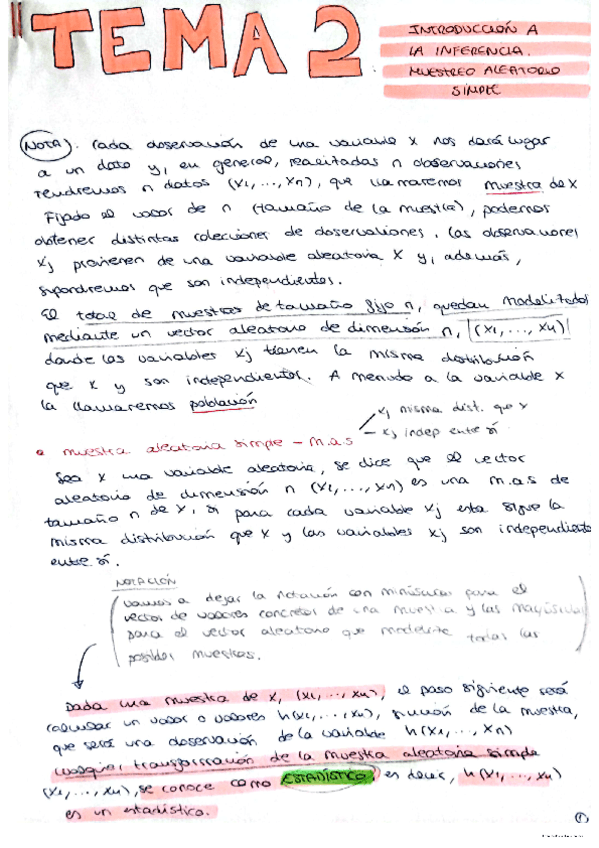 TEMA 2
INTRODUCCIÓN A
LA INFERENCIA.
MUESTREO ALEATORIO
SIMPLE
NOTA: Cada observación de una variable X nos dará lugar
a un dato y, en general, realizadas n observaciones
tendremos n datos (x1,...,xn), que llamaremos muestra de X
Fijado el valor de n (tamaño de la muestra), podemos
obtener distintas colecciones de observaciones. Las observaciones
xj provienen de una variable aleatoria X y, además,
supondremos que son independientes.
El total de muestras de tamaño fijo n, quedan modelizadas
mediante un vector aleatorio de dimensión n, (X1,...,Xn)
donde las variables Xj tienen la misma distribución
que X y son independientes. A menudo a la variable X
la llamaremos población
xj misma dist. que X
• muestra aleatoria simple - m.a.s
xj indep entre sí
Sea X una variable aleatoria, se dice que el vector
aleatorio de dimensión n (X1,...,Xn) es una m.a.s de
tamaño n de X, si para cada variable Xj esta sigue la
misma distribución que X y las variables Xj son independiente
entre sí.
NOTACIÓN
vamos a dejar la notación con minúsculas para el
vector de valores concretos de una muestra y las mayúsculas
para el vector aleatorio que modelice todas las
posibles muestras.
Dada una muestra de X, (x1,...,xn), el paso siguiente será
calcular un valor o valores h(x1,...,xn), función de la muestra,
que será una observación de la variable h(X1,...,Xn)
cualquier transformación de la muestra aleatoria simple
(X1,...,Xn), se conoce como ESTADÍSTICO, es decir, h(X1,...,Xn)
es un estadístico.
1